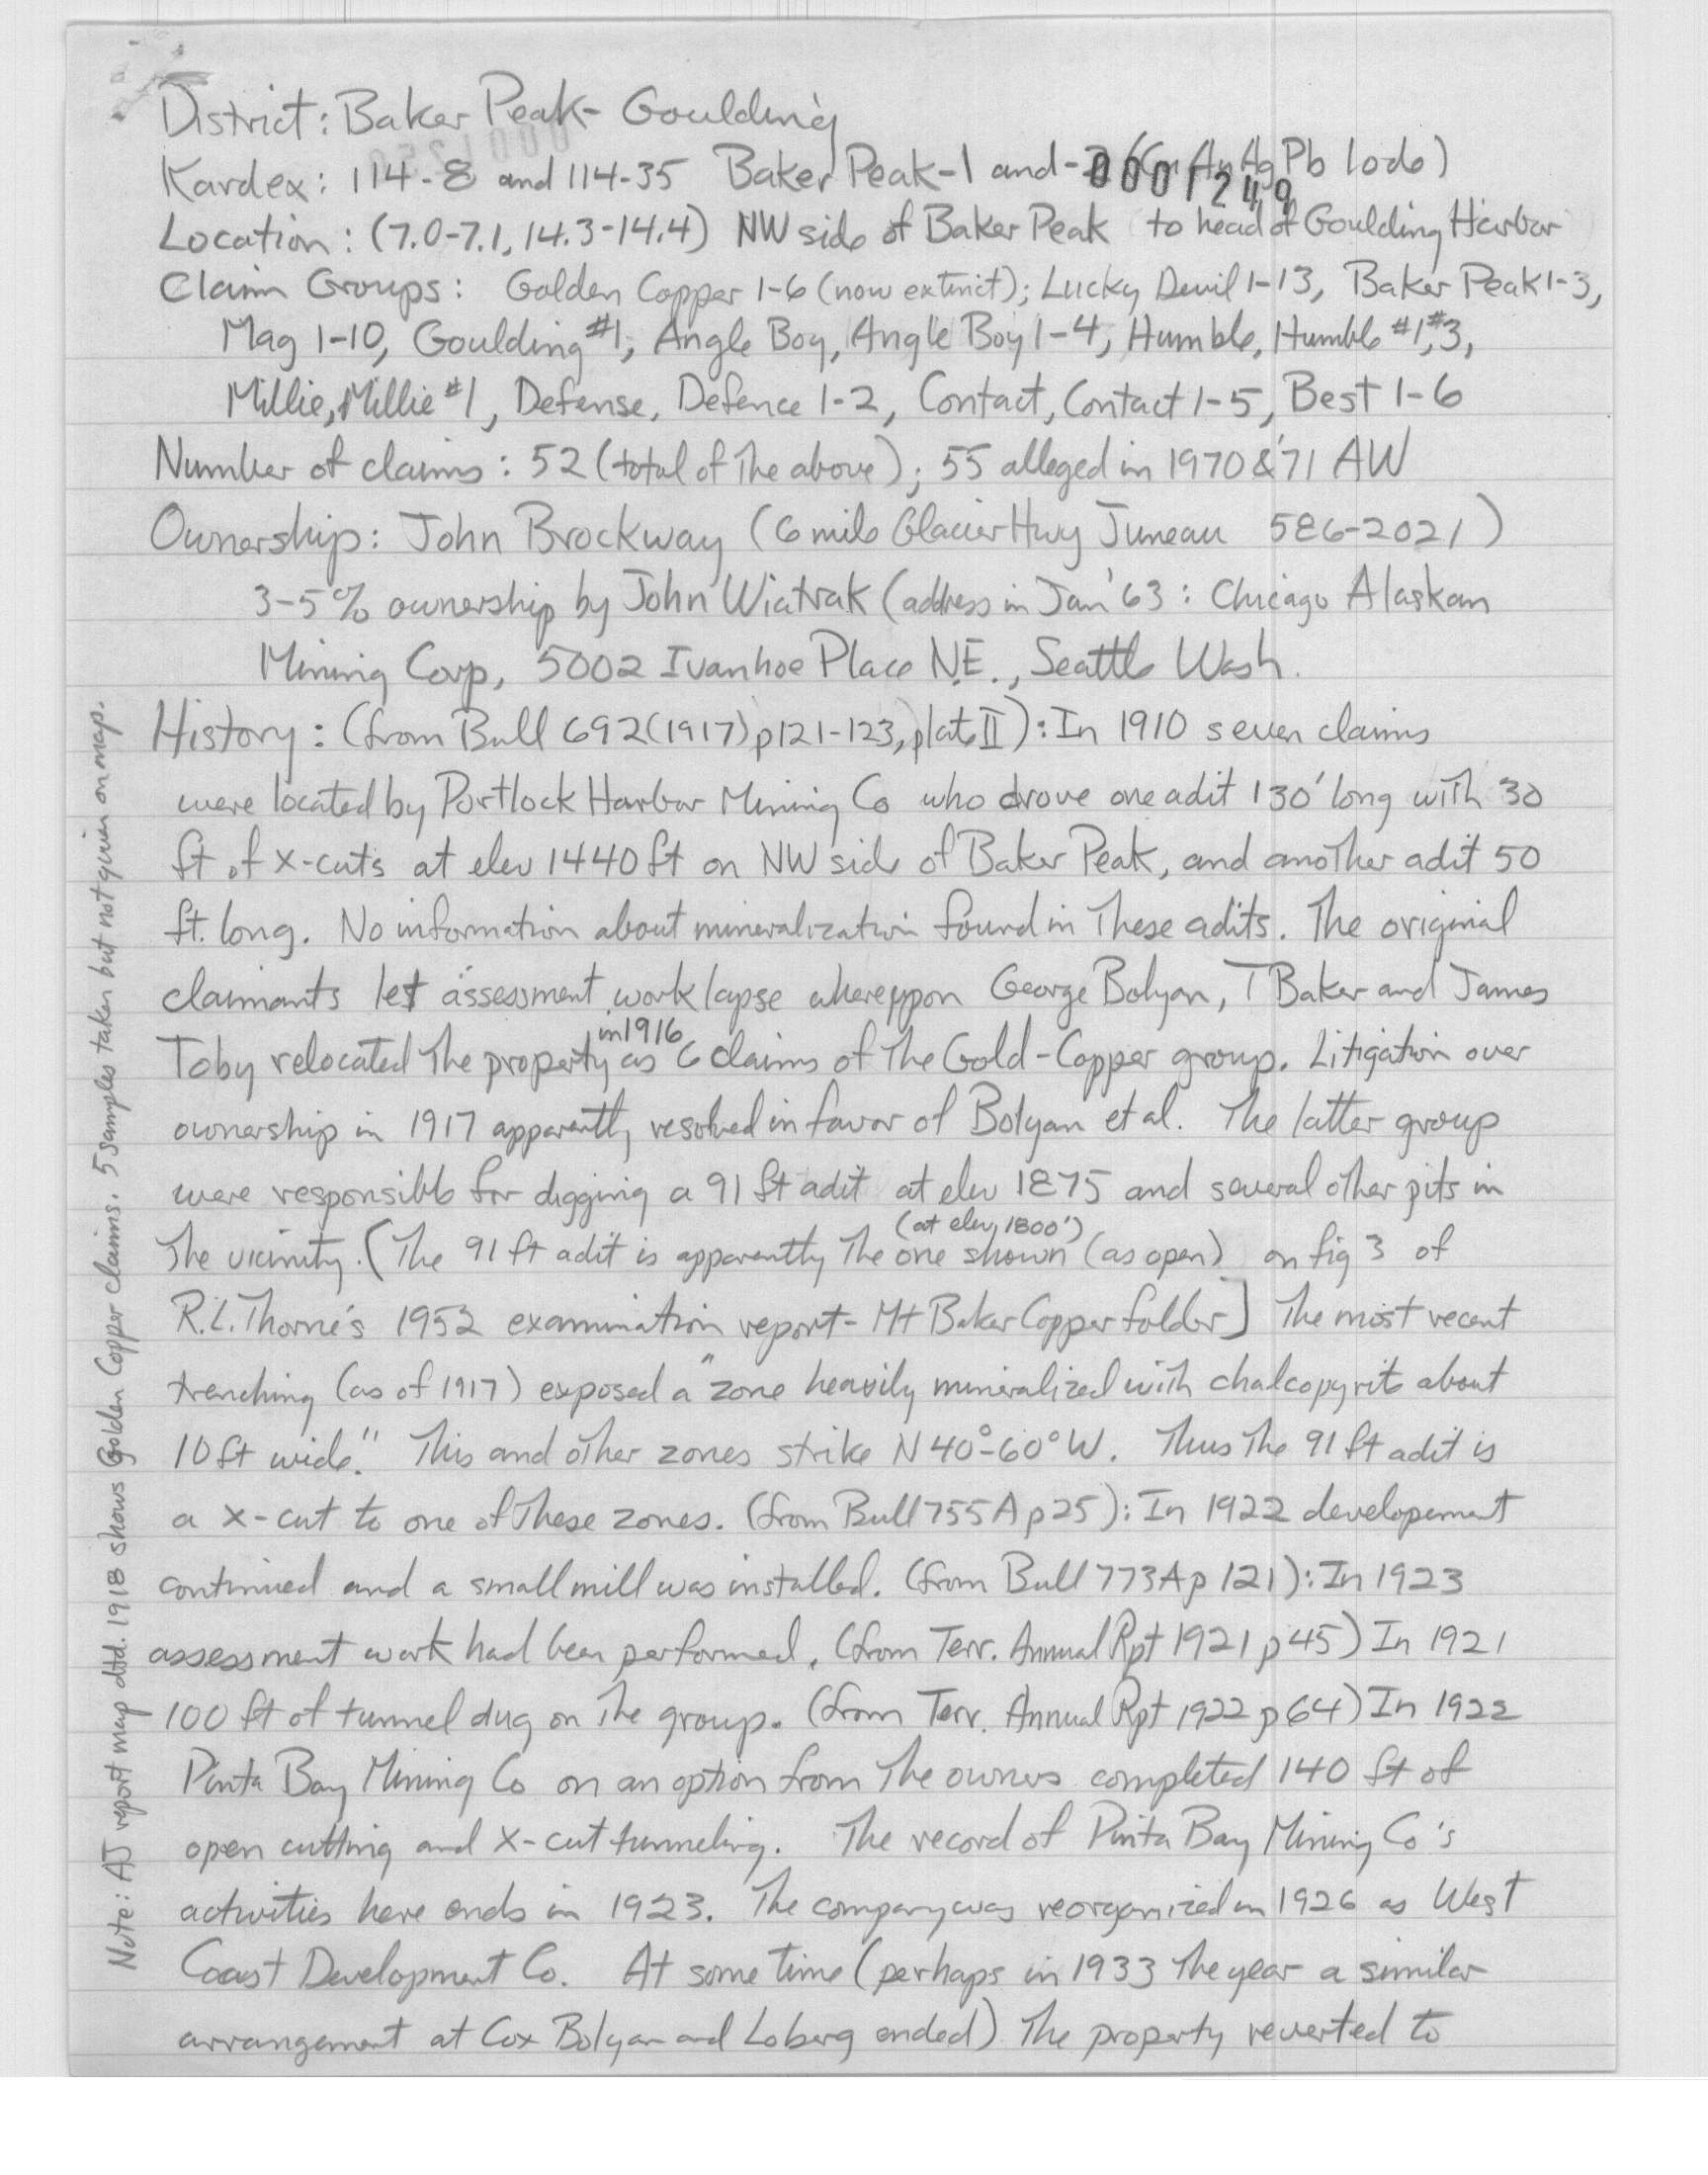 District: Baker Peak- Goulding
Kardex: 114-8 and 114-35 Baker Peak-1 and- (Cu Au Ag Pb lode)
0001249
Location: (7.0-7.1, 14.3-14.4) NW side of Baker Peak to head of Goulding Harbor
Claim Groups: Golden Copper 1-6 (now extinct); Lucky Devil 1-13, Baker Peak 1-3,
Mag 1-10, Goulding #1, Angle Boy, Angle Boy 1-4, Humble, Humble #1,#3,
Millie, Millie #1, Defense, Defence 1-2, Contact, Contact 1-5, Best 1-6
Number of claims: 52 (total of the above); 55 alleged in 1970 & '71 AW
Ownership: John Brockway (6 mile Glacier Hwy Juneau 586-2021)
3-5% ownership by John Wiatrak (address in Jan '63: Chicago Alaskan
Mining Corp, 5002 Ivanhoe Place N.E., Seattle Wash.
History: (from Bull 692 (1917) p121-123, plate II): In 1910 seven claims
were located by Portlock Harbor Mining Co who drove one adit 130' long with 30
ft of x-cuts at elev 1440 ft on NW side of Baker Peak, and another adit 50
ft. long. No information about mineralization found in these adits. The original
claimants let assessment work lapse whereupon George Bolyan, T Baker and James
Toby relocated the property in 1916 as 6 claims of the Gold-Copper group. Litigation over
ownership in 1917 apparently resolved in favor of Bolyan et al. The latter group
were responsible for digging a 91 ft adit at elev 1875 and several other pits in
the vicinity. (The 91 ft adit is apparently the one shown (at elev 1800') (as open) on fig 3 of
R.L. Thorne's 1952 examination report- Mt Baker Copper folder] The most recent
trenching (as of 1917) exposed a "zone heavily mineralized with chalcopyrite about
10 ft wide." This and other zones strike N 40°-60° W. Thus the 91 ft adit is
a x-cut to one of these zones. (from Bull 755A p25): In 1922 developement
continued and a small mill was installed. (from Bull 773A p 121): In 1923
assessment work had been performed. (from Terr. Annual Rpt 1921 p 45) In 1921
100 ft of tunnel dug on the group. (from Terr. Annual Rpt 1922 p 64) In 1922
Pinta Bay Mining Co on an option from the owners completed 140 ft of
open cutting and x-cut tunneling. The record of Pinta Bay Mining Co's
activities here ends in 1923. The company was reorganized in 1926 as West
Coast Development Co. At some time (perhaps in 1933 the year a similar
arrangement at Cox Bolyan and Loberg ended) the property reverted to
Note: AJ report map dtd. 1918 shows Golden Copper claims. 5 samples taken but not given on map.